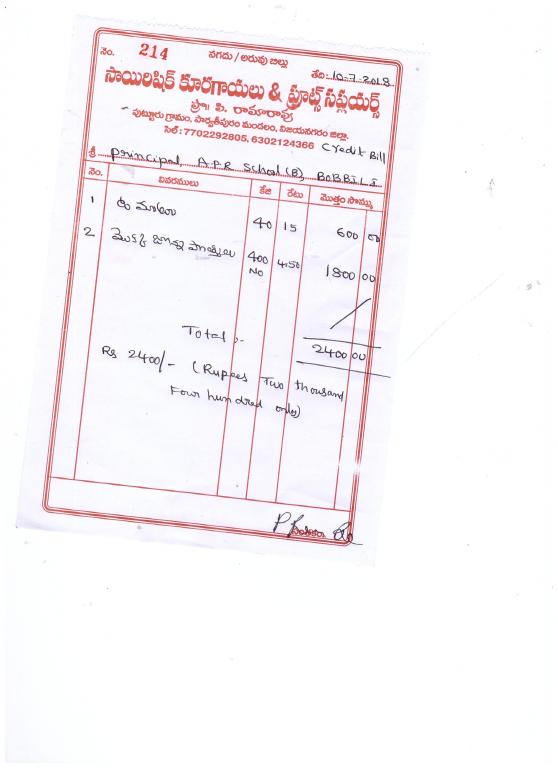 నెం. 214 నగదు/అరువు బిల్లు తేది: 10-7-2018
సాయిరిషిక్ కూరగాయలు & ఫ్రూట్స్ సప్లయర్స్
ప్రొ॥ పి. రామారావు
పుట్టూరు గ్రామం, పార్వతీపురం మండలం, విజయనగరం జిల్లా.
సెల్ : 7702292805, 6302124366 Credit Bill
శ్రీ Principal, A.P.R School (B), BOBBILI
నెం. వివరములు కేజి రేటు మొత్తం సొమ్ము
1 40 15 600 00
2 మొక్కజొన్న పొత్తులు 400 No 4.50 1800 00
Total :- 2400 00
Rs 2400/- (Rupees Two thousand
Four hundred only)
సంతకం.